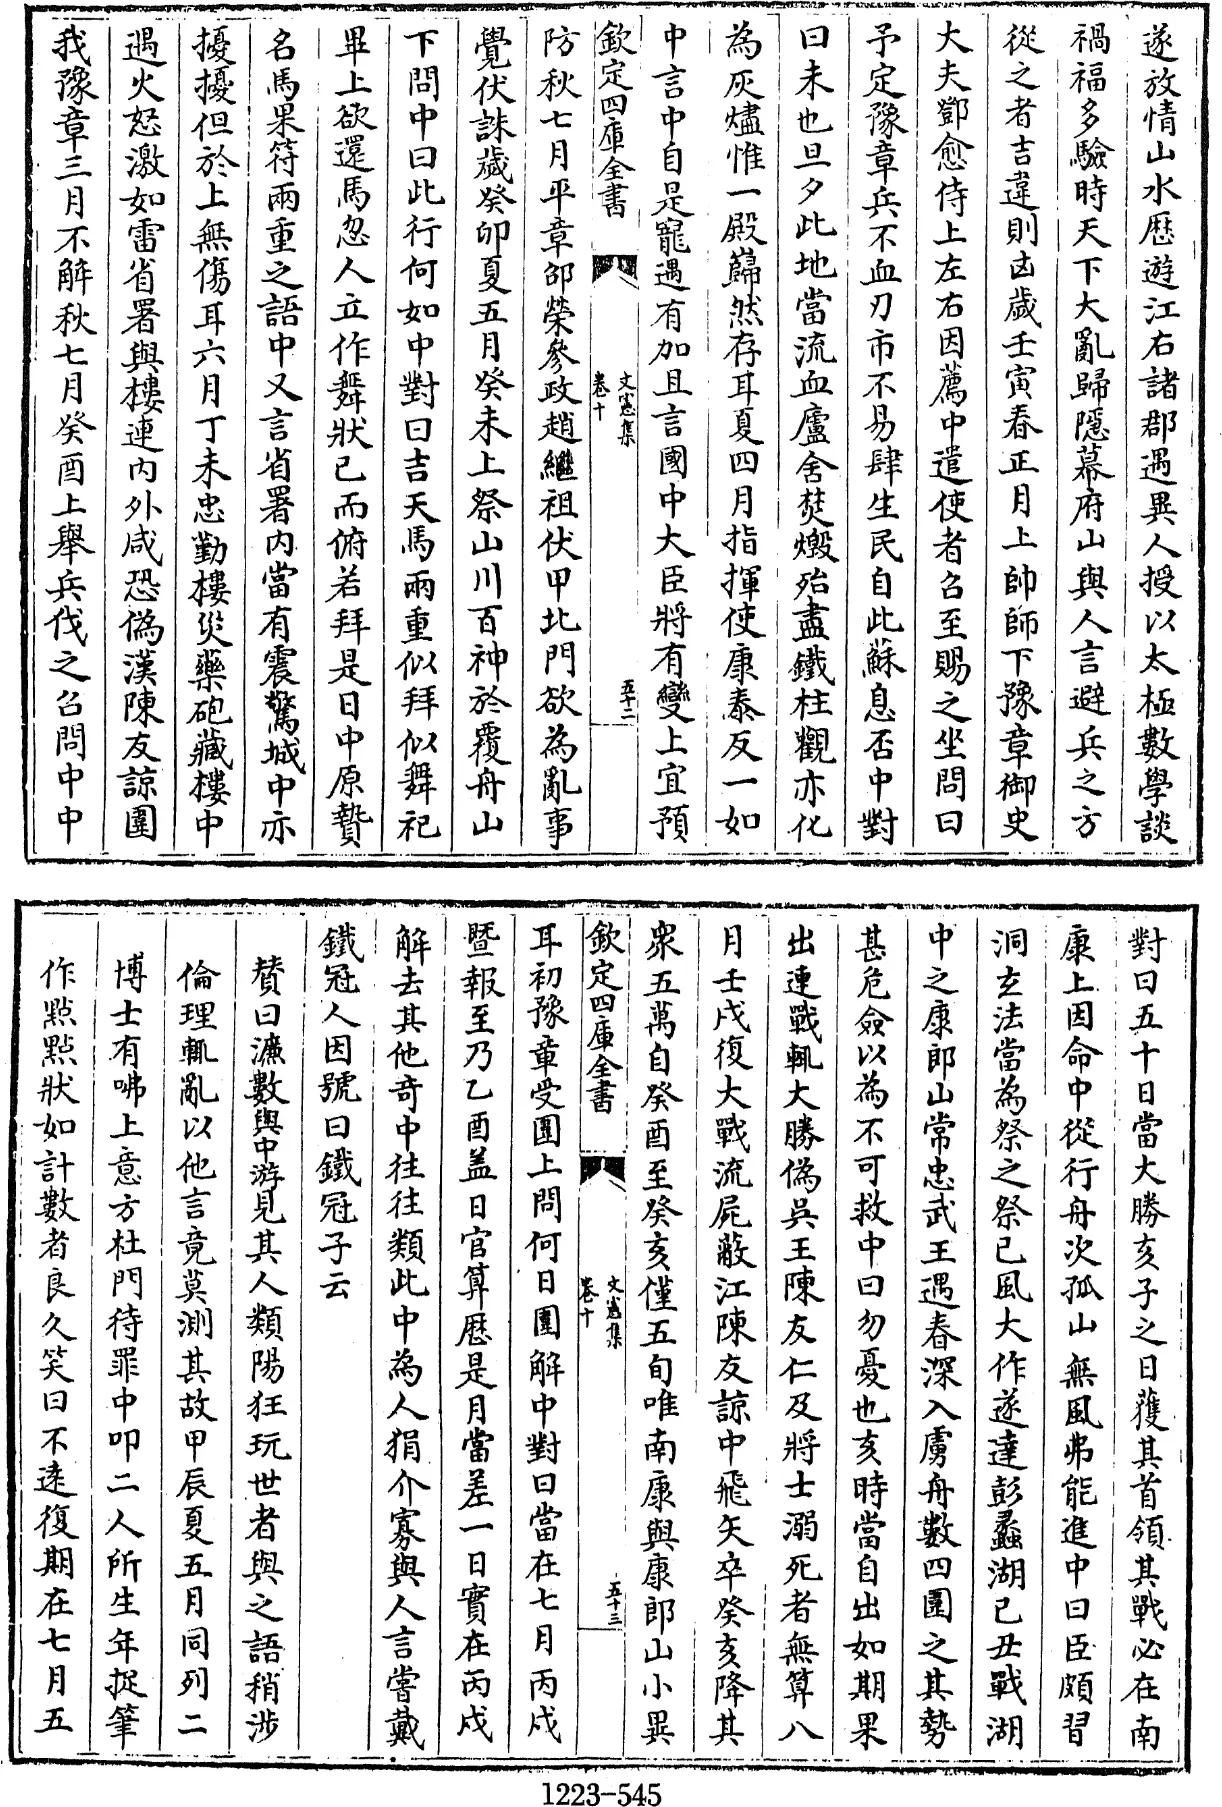 遂放情山水歷遊江右諸郡遇異人授以太極數學談
禍福多驗時天下大亂歸隱幕府山與人言避兵之方
從之者吉違則凶歲壬寅春正月上帥師下豫章御史
大夫鄧愈侍上左右因薦中遣使者召至賜之坐問曰
予定豫章兵不血刃市不易肆生民自此蘇息否中對
曰未也旦夕此地當流血廬舍焚燬殆盡鐵柱觀亦化
為灰燼惟一殿巋然存耳夏四月指揮使康泰反一如
中言中自是寵遇有加且言國中大臣將有變上宜預
欽定四庫全書
文憲集
卷十
五十二
防秋七月平章邵榮參政趙繼祖伏甲北門欲為亂事
覺伏誅歲癸卯夏五月癸未上祭山川百神於覆舟山
下問中曰此行何如中對曰吉天馬兩重似拜似舞祀
畢上欲還馬忽人立作舞狀已而俯若拜是日中原贄
名馬果符兩重之語中又言省署內當有震驚城中亦
擾擾但於上無傷耳六月丁未忠勤樓災藥砲藏樓中
遇火怒激如雷省署與樓連內外咸恐偽漢陳友諒圍
我豫章三月不解秋七月癸酉上舉兵伐之召問中中
對曰五十日當大勝亥子之日獲其首領其戰必在南
康上因命中從行舟次孤山無風弗能進中曰臣頗習
洞玄法當為祭之祭已風大作遂達彭蠡湖己丑戰湖
中之康郎山常忠武王遇春深入虜舟數四圍之其勢
甚危僉以為不可救中曰勿憂也亥時當自出如期果
出連戰輒大勝偽吳王陳友仁及將士溺死者無算八
月壬戌復大戰流屍蔽江陳友諒中飛矢卒癸亥降其
眾五萬自癸酉至癸亥僅五旬唯南康與康郎山小異
欽定四庫全書
文憲集
卷十
五十三
耳初豫章受圍上問何日圍解中對曰當在七月丙戌
暨報至乃乙酉蓋日官算歷是月當差一日實在丙戌
解去其他奇中往往類此中為人狷介寡與人言嘗戴
鐵冠人因號曰鐵冠子云
贊曰濂數與中游見其人類陽狂玩世者與之語稍涉
倫理輒亂以他言竟莫測其故甲辰夏五月同列二
博士有咈上意方杜門待罪中叩二人所生年捉筆
作點點狀如計數者良久笑曰不遠復期在七月五
1223-545